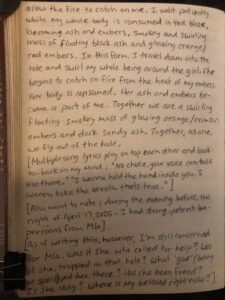 allow the fire to catch on me. I wait patiently
while my whole body is consumed in the blaze,
becoming ash and embers, smokey and swirling
mass of floating black ash and glowing orange/
red embers. In this form, I travel down into the
hole and swirl my whole being around the girl. She
begins to catch on fire from the heat of my embers.
Her body is consumed. Her ash and embers be-
come a part of me. Together we are a swirling
floating smokey mass of glowing orange/crimson
embers and dark sandy ash. Together, as one,
we fly out of the hole.
[Multiple song lyrics play on top each other and back-
to-back in my mind: "No choice, your voice can take
me there." "I wanna hold the hand inside you. I
wanna take the breath that's true."]
[Also want to note; during the evening before, the
night of April 17, 2025 - I had strong, potent im-
pressions from Mia].
[As of writing this, however, I'm still concerned
for Mia. Was it she who called for help? Was
it she, trapped in that hole? What 'god' (being
or spirit) put her there? Has she been freed?
Is she okay? Where is my beloved right now?]